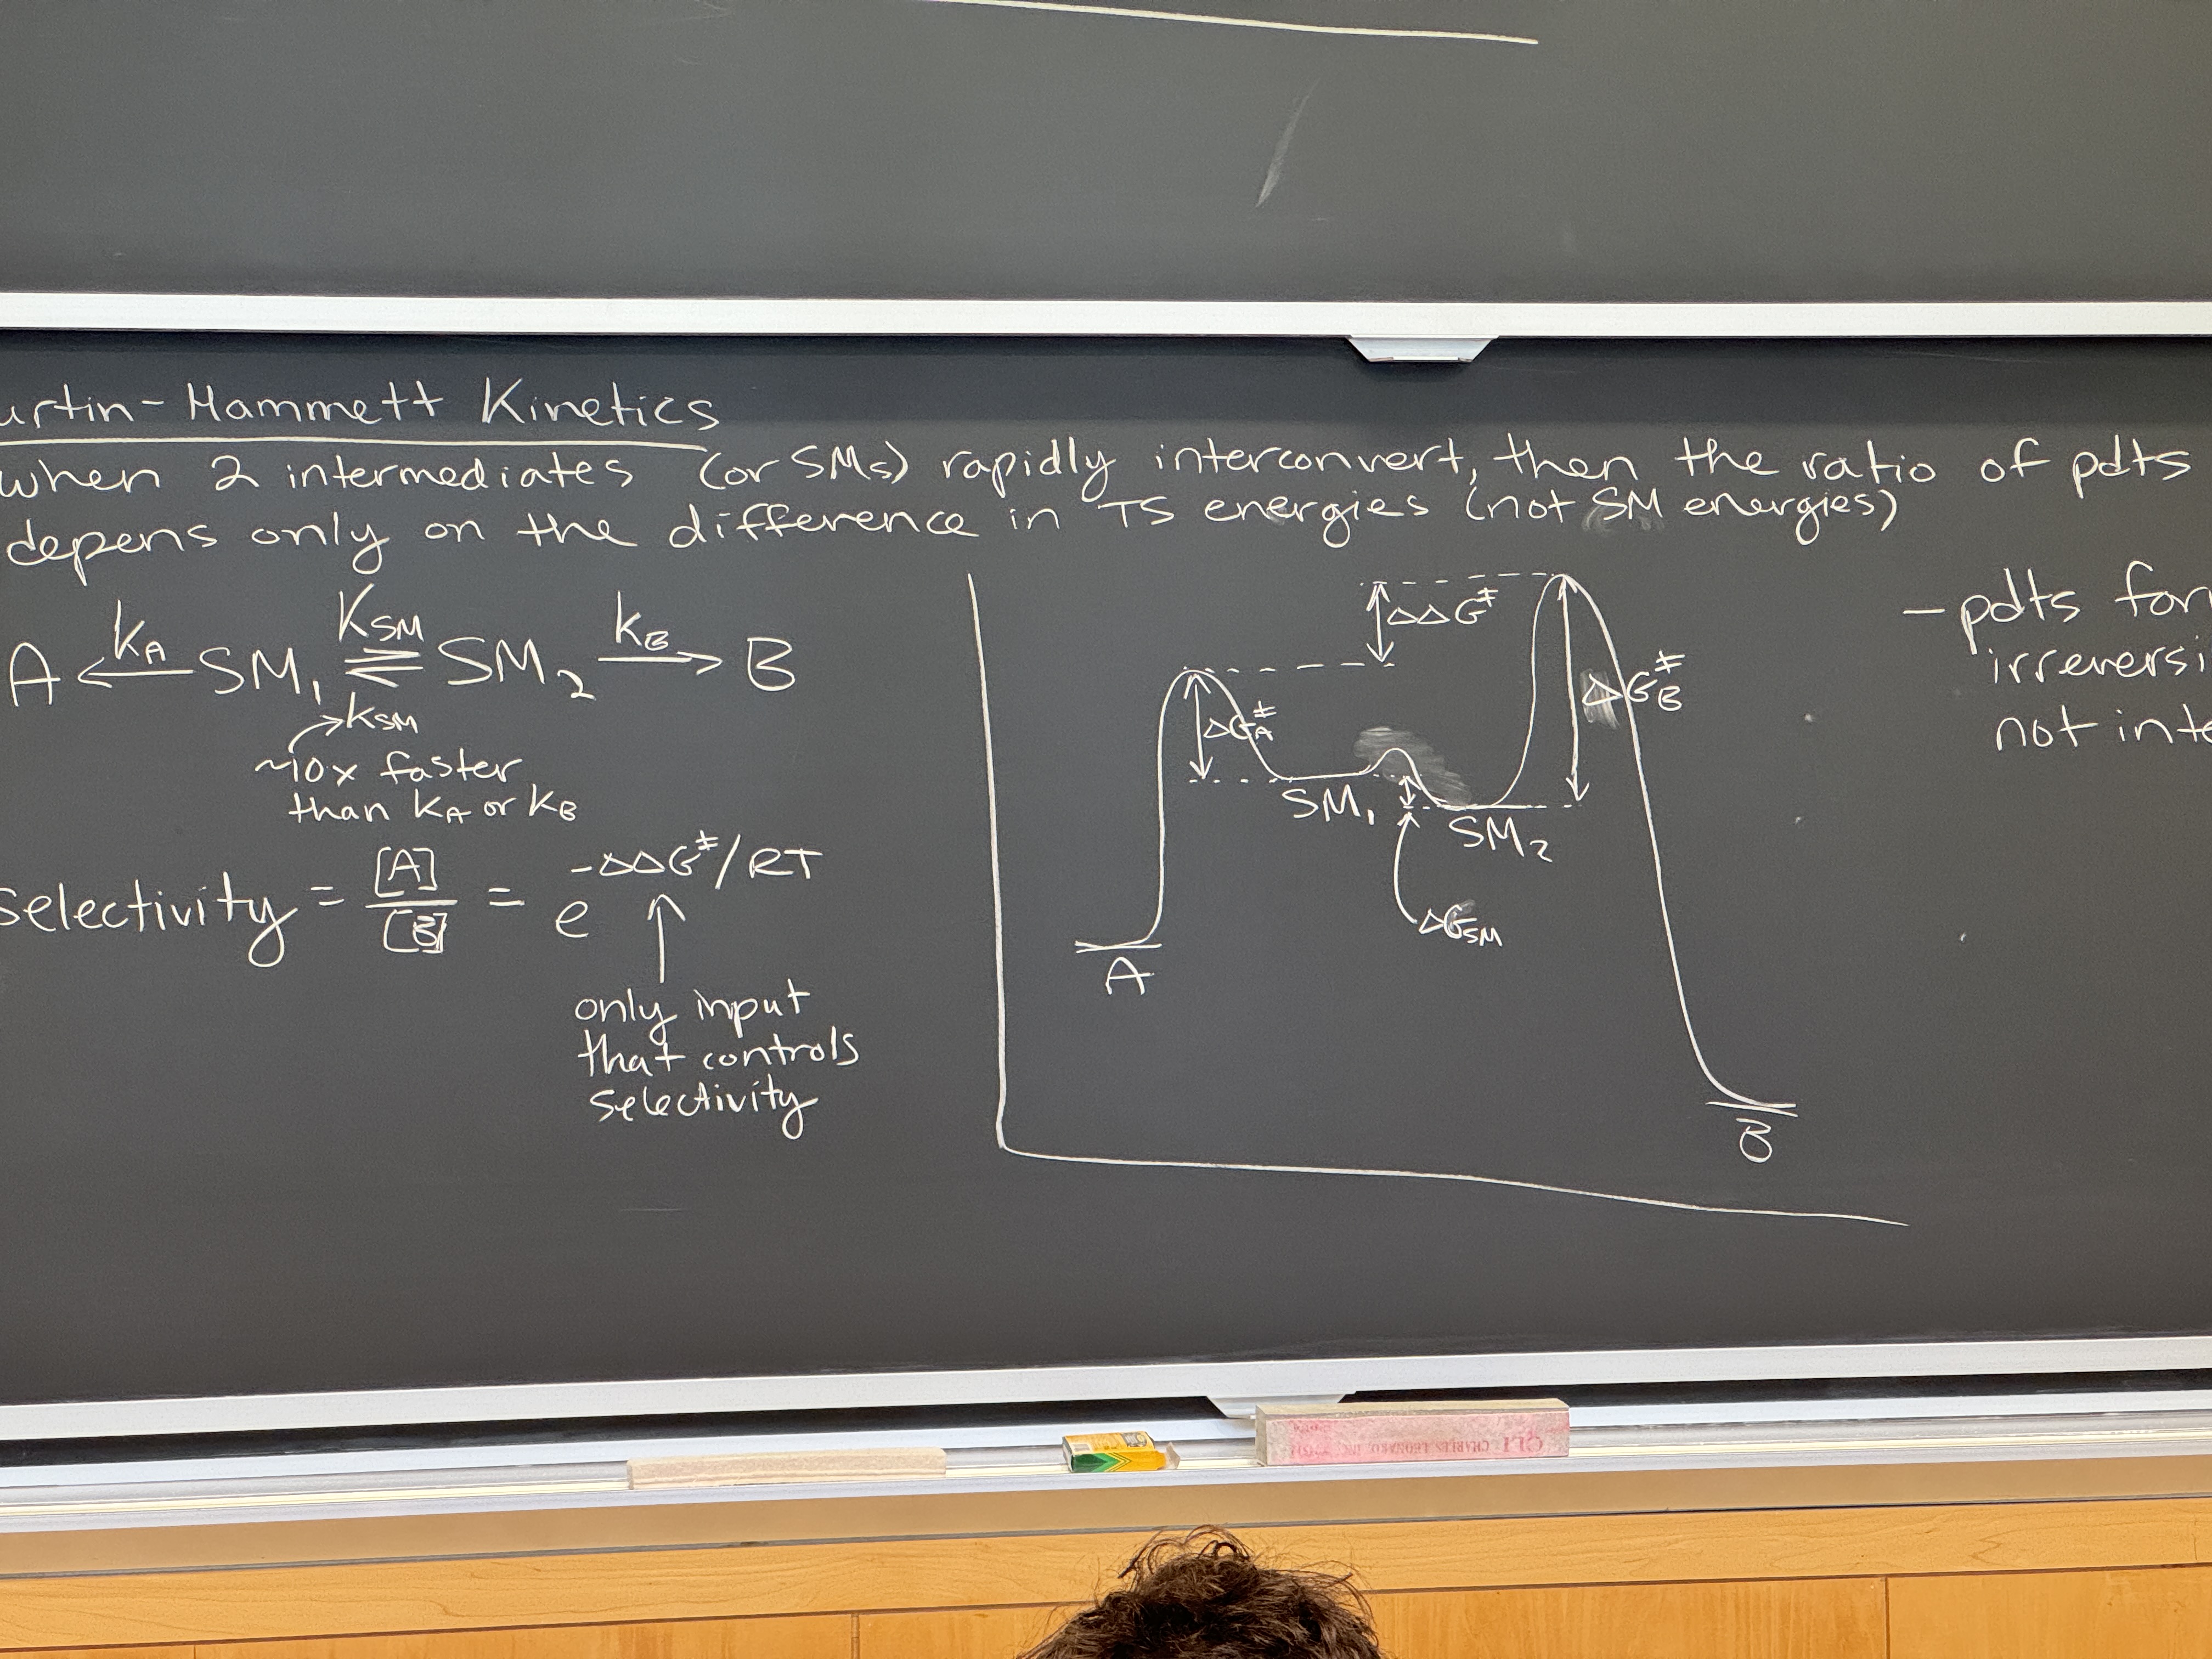 urtin-Hammett Kinetics
when 2 intermediates (or SMs) rapidly interconvert, then the ratio of pdts
depens only on the difference in TS energies (not SM energies)
A ←kA SM₁ ⇌KSM SM₂ kB→ B
kSM
~10x faster
than kA or kB
selectivity = [A]/[B] = e^(-ΔΔG‡/RT)
only input
that controls
selectivity
ΔΔG‡
ΔG‡A
ΔG‡B
SM₁
SM₂
ΔGSM
A
B
- pdts for
irreversi
not inte
CLI CHARLES LEONARD, INC.